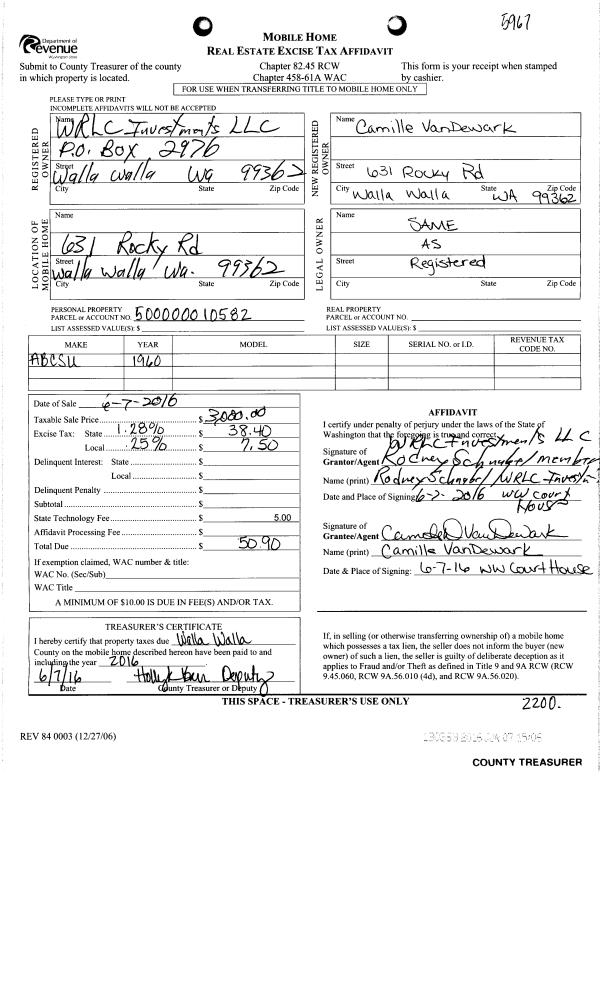 5967
Department of
Revenue
Washington State
MOBILE HOME
REAL ESTATE EXCISE TAX AFFIDAVIT
Submit to County Treasurer of the county
in which property is located.
Chapter 82.45 RCW
Chapter 458-61A WAC
This form is your receipt when stamped
by cashier.
FOR USE WHEN TRANSFERRING TITLE TO MOBILE HOME ONLY
PLEASE TYPE OR PRINT
INCOMPLETE AFFIDAVITS WILL NOT BE ACCEPTED
REGISTERED OWNER
Name WRLC Investments LLC
P.O. Box 2976
Street
Walla Walla Wa 99362
City State Zip Code
NEW REGISTERED OWNER
Name Camille VanDewark
Street 631 Rocky Rd
City Walla Walla State WA Zip Code 99362
LOCATION OF MOBILE HOME
Name
631 Rocky Rd
Street
Walla Walla Wa. 99362
City State Zip Code
LEGAL OWNER
Name SAME
AS
Street Registered
City State Zip Code
PERSONAL PROPERTY
PARCEL or ACCOUNT NO. 500000010582
LIST ASSESSED VALUE(S): $
REAL PROPERTY
PARCEL or ACCOUNT NO.
LIST ASSESSED VALUE(S): $
MAKE YEAR MODEL SIZE SERIAL NO. or I.D. REVENUE TAX CODE NO.
ABCSU 1960
Date of Sale 6-7-2016
Taxable Sale Price $ 3000.00
Excise Tax: State 1.28% $ 38.40
Local .25% $ 7.50
Delinquent Interest: State $
Local $
Delinquent Penalty $
Subtotal $
State Technology Fee $ 5.00
Affidavit Processing Fee $
Total Due $ 50.90
If exemption claimed, WAC number & title:
WAC No. (Sec/Sub)
WAC Title
A MINIMUM OF $10.00 IS DUE IN FEE(S) AND/OR TAX.
AFFIDAVIT
I certify under penalty of perjury under the laws of the State of
Washington that the foregoing is true and correct.
WRLC Investments LLC
Signature of
Grantor/Agent Rodney Schnabel/member
Name (print) Rodney Schnabel/WRLC Invest
Date and Place of Signing 6-7-2016 WW Court
House
Signature of
Grantee/Agent Camille VanDewark
Name (print) Camille VanDewark
Date & Place of Signing: 6-7-16 WW Court House
TREASURER'S CERTIFICATE
I hereby certify that property taxes due Walla Walla
County on the mobile home described hereon have been paid to and
including the year 2016.
6/7/16 Deputy
Date County Treasurer or Deputy
If, in selling (or otherwise transferring ownership of) a mobile home
which possesses a tax lien, the seller does not inform the buyer (new
owner) of such a lien, the seller is guilty of deliberate deception as it
applies to Fraud and/or Theft as defined in Title 9 and 9A RCW (RCW
9.45.060, RCW 9A.56.010 (4d), and RCW 9A.56.020).
THIS SPACE - TREASURER'S USE ONLY
2200.
REV 84 0003 (12/27/06)
COUNTY TREASURER